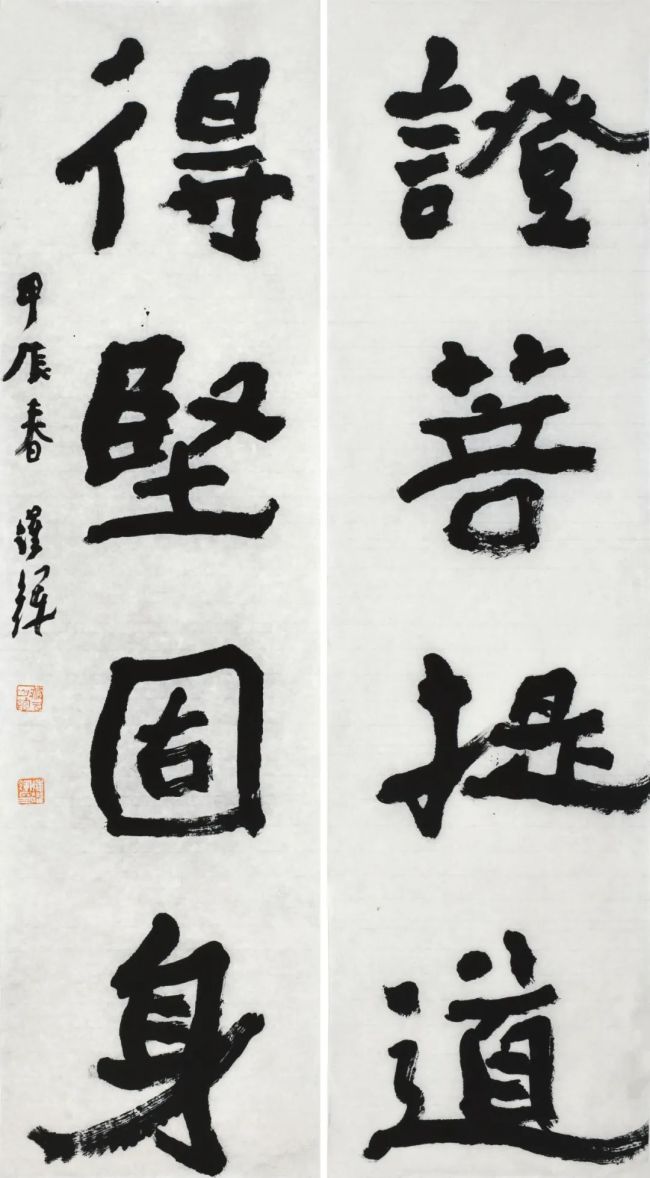 證菩提道
得堅固身
甲辰春